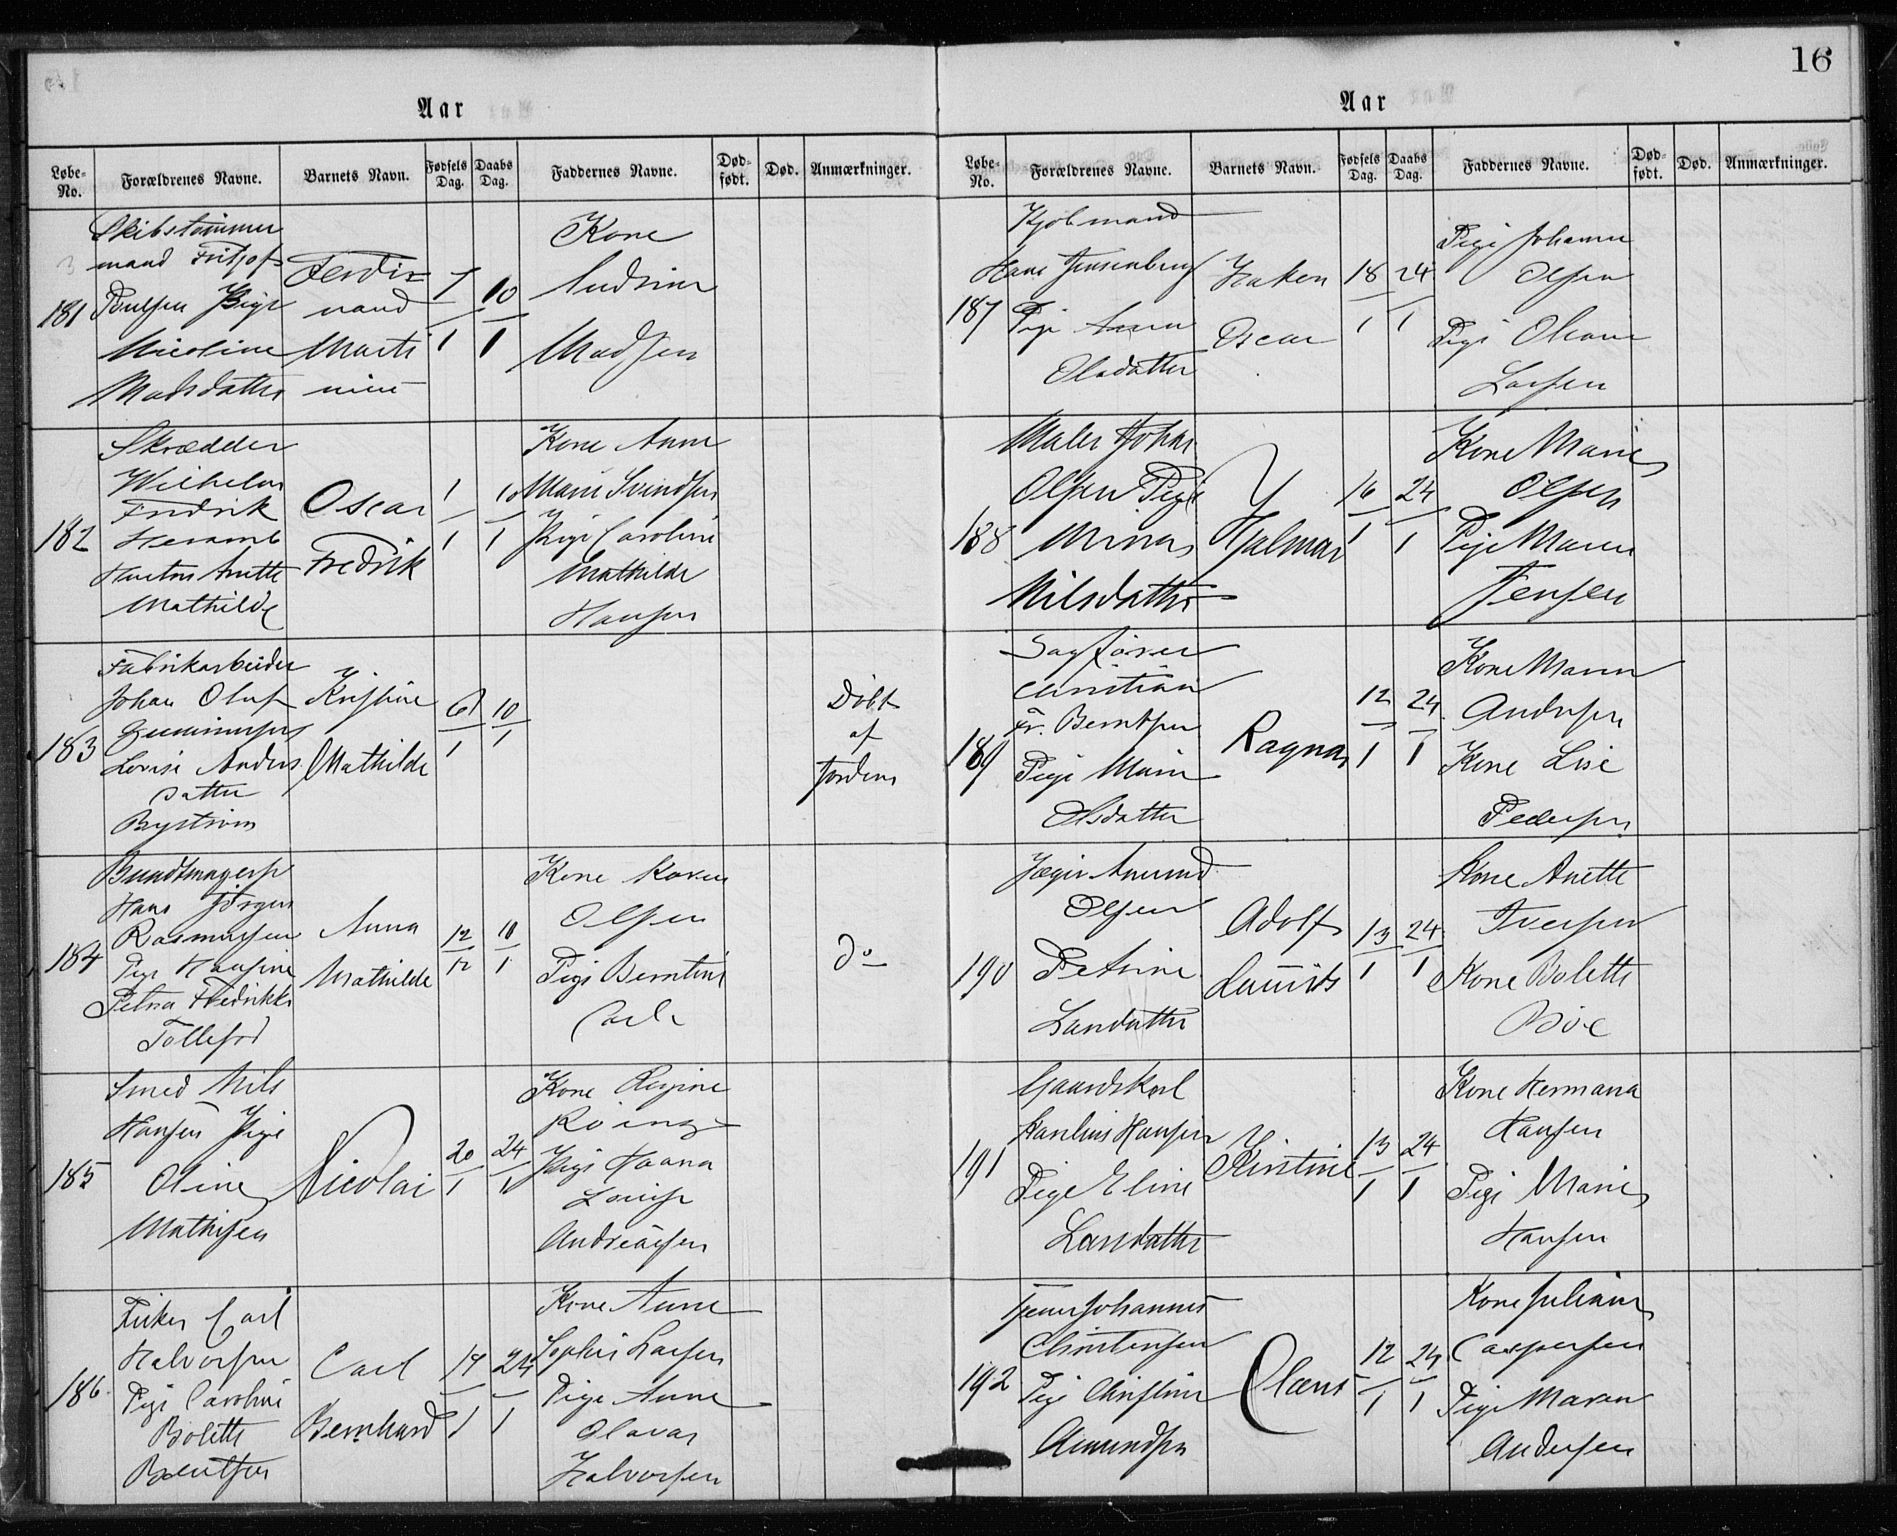 16
Aar
Løbe-No. Forældrenes Navne. Barnets Navn. Fødsels Dag. Daabs Dag. Faddernes Navne. Død-født. Død. Anmærkninger.
181
Skibstømmer
mand Fritjof
Poulsen Pige
Nicoline
Madsdatter
Ferdi
nand
Marti
nius
7/1
10/1
Kone
Andrine
Madsen
182
Skrædder
Wilhelm
Fredrik
Anette
Mathilde
Oscar
Fredrik
1/1
10/1
Kone Anne
Marie Svendsen
Pige Caroline
Mathilde
Hansen
183
Fabrikarbeider
Johan Oluf
Gummusen
Lovise Anders
datter
Byström
Kristine
Mathilde
6/1
10/1
Døbt
af
Jordem
184
Bundtmagersv
Hans Jörgen
Rasmussen
Pige Hansine
Petrea Fredrikke
Tollefsd
Anna
Mathilde
12/12
10/1
Kone Karen
Olsen
Pige Berntine
Carls
do
185
Smed Nils
Hansen Pige
Oline
Mathisen
Nicolai
20/1
24/1
Kone Regine
Pige Hanna
Louise
Andreasen
186
Carl
Halvorsen
Pige Caroline
Bolette
Berntsen
Carl
Bernhard
19/1
24/1
Kone Anne
Sophie Larsen
Pige Anne
Olava
Halvorsen
Aar
Løbe-No. Forældrenes Navne. Barnets Navn. Fødsels Dag. Daabs Dag. Faddernes Navne. Død-født. Død. Anmærkninger.
187
Kjøbmand
Hans Jensenberg
Pige Anna
Olsdatter
Haken
Oscar
18/1
24/1
Pige Johanne
Olsen
Pige Oleane
Larsen
188
Maler Johan
Olsen Pige
Mina
Nilsdatter
Hjalmar
16/1
24/1
Kone Marie
Olsen
Pige Maren
Jensen
189
Sagfører
Christian
Fr. Berntsen
Pige Marie
Olsdatter
Ragna
12/1
24/1
Kone Maren
Andersen
Kone Lise
Pedersen
190
Jæger Amund
Olsen
Petrine
Larsdatter
Adolf
Lauritz
13/1
24/1
Kone Anette
Iversen
Kone Bolette
Böe
191
Gaardskarl
Karelius Hansen
Pige Eline
Larsdatter
Kristine
13/1
24/1
Kone Hermana
Hansen
Pige Marie
Hansen
192
Tjener Johannes
Christensen
Pige Christine
Amundsen
Claus
12/1
24/1
Kone Juliane
Caspersen
Pige Maren
Andersen